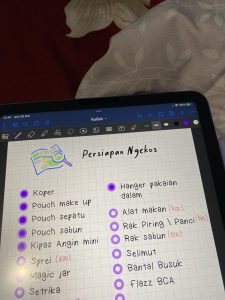 Kuliah
Persiapan Ngekos
Koper
Pouch make up
Pouch sepatu
Pouch sabun
Kipas Angin mini
Sprei
Magic jar
Setrika
Hanger pakaian
dalam
Alat makan
Rak Piring \ Panci
Rak sabun
Selimut
Bantal Busuk
Flazz BCA